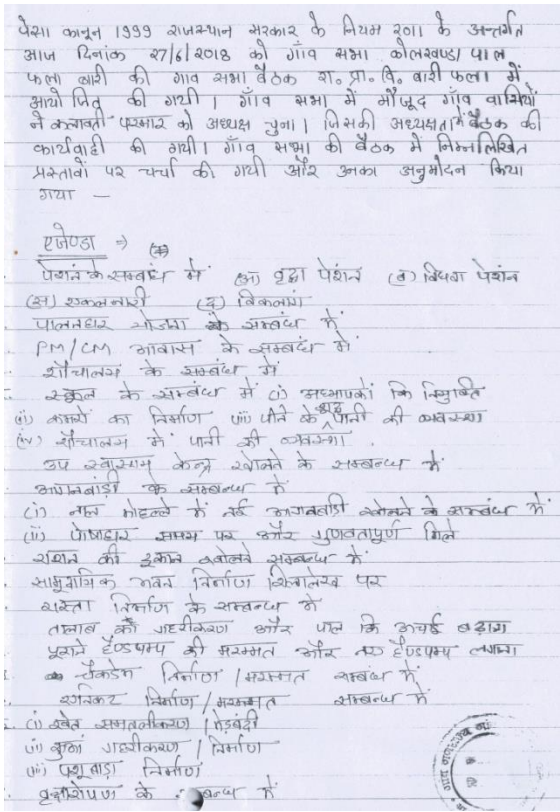 पेसा कानून 1999 राजस्थान सरकार के नियम 2011 के अन्तर्गत
आज दिनांक 27/6/2018 को गाँव सभा कोलखण्ड/पाल
फला बारी की गाव सभा बैठक रा. प्रा. वि. बारी फला में
आयोजित की गयी। गाँव सभा में मौजूद गाँव वासियों
ने कलावती परमार को अध्यक्ष चुना। जिसकी अध्यक्षता में बैठक की
कार्यवाही की गयी। गाँव सभा की बैठक में निम्नलिखित
प्रस्तावों पर चर्चा की गयी और उनका अनुमोदन किया
गया —
एजेण्डा ⇒
पेशंन के सम्बंध में (अ) वृद्धा पेशंन (ब) विधवा पेशंन
(स) एकलनारी (द) विकलांग
पालनहार योजना के सम्बंध में
PM/CM आवास के सम्बंध में
शौचालय के सम्बंध में
स्कूल के सम्बंध में (i) अध्यापकों कि नियुक्ति
(ii) कमरों का निर्माण (iii) पीने के शुद्ध पानी की व्यवस्था
(iv) शौचालय में पानी की व्यवस्था.
उप स्वास्थय केन्द्र खोलने के सम्बन्ध में
आगनबाडी के सम्बन्ध में
(i) नाल मोहल्ले में नई आगनबाडी खोलने के सम्बंध में
(ii) पोषाहार समय पर और गुणवतापूर्ण मिले
राशन की दूकान खोलने सम्बन्ध में
सामुदायिक भवन निर्माण शिलालेख पर
रास्ता निर्माण के सम्बन्ध में
तालाब की गहरीकरण और पाल कि ऊचाई बढ़ाना
पूराने हैण्डपम्प की मरम्मत और नए हैण्डपम्प लगाना
चैकडेम निर्माण/मरम्मत सम्बंध में
एनिकट निर्माण/मरम्मत सम्बंध में
(i) खेत समतलीकरण/मेड़बंदी
(ii) कुआं गहरीकरण/निर्माण
(iii) पशुबाड़ा निर्माण
वृक्षारोपण के सम्बन्ध में